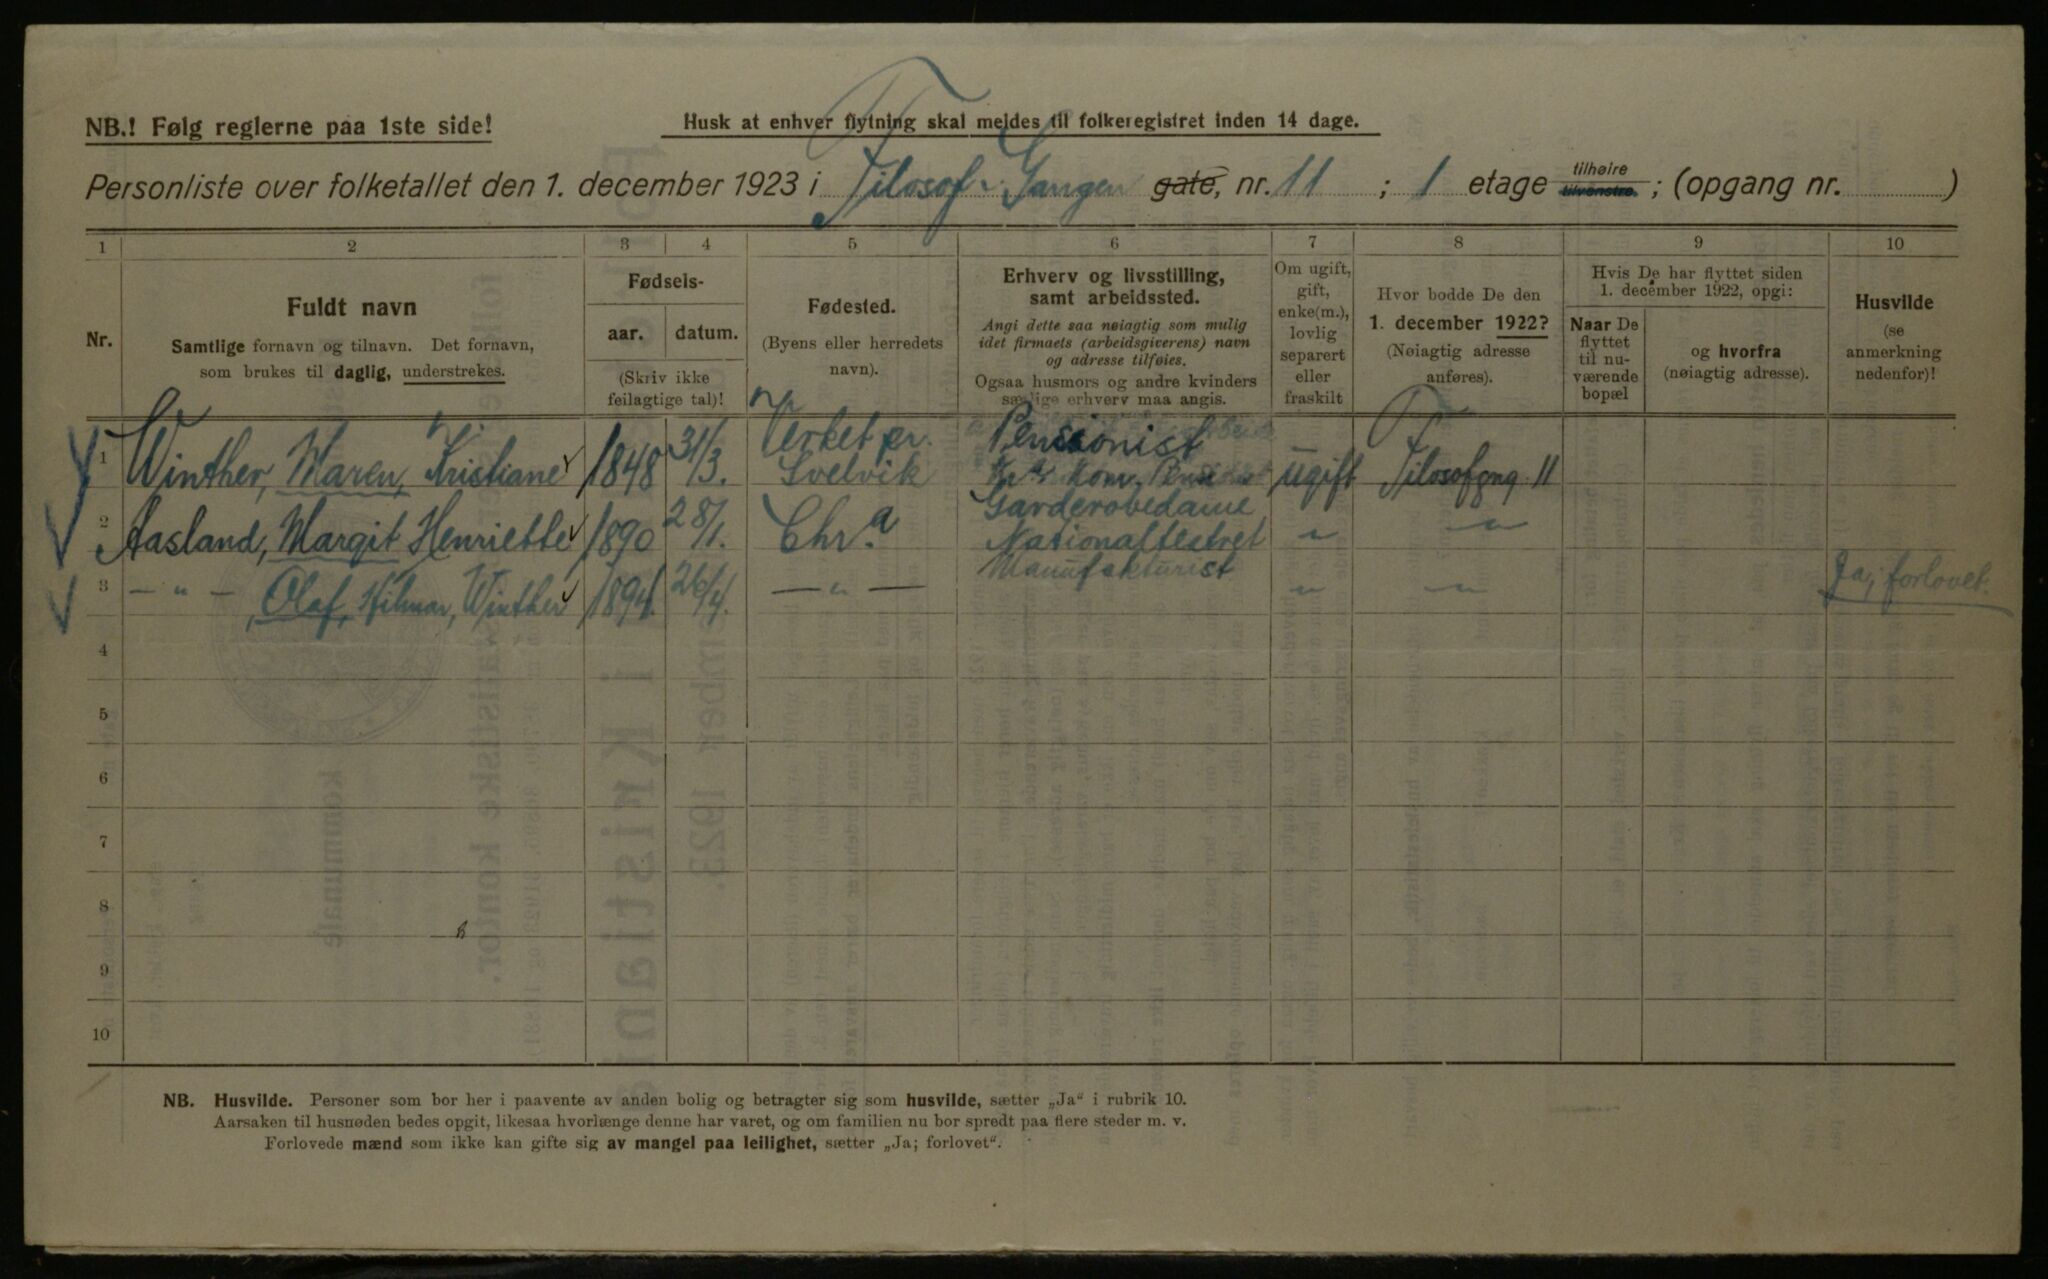 NB.! Følg reglerne paa 1ste side!
Husk at enhver flytning skal meldes til folkeregistret inden 14 dage.
Personliste over folketallet den 1. december 1923 i Filosof. Gangen gate, nr. 11 ; 1 etage tilhøire tilvenstre. ; (opgang nr. )
1 2 3 4 5 6 7 8 9 10
Nr.
Fuldt navn
Samtlige fornavn og tilnavn. Det fornavn,
som brukes til daglig, understrekes.
Fødsels-
aar. datum.
(Skriv ikke
feilagtige tal)!
Fødested.
(Byens eller herredets
navn).
Erhverv og livsstilling,
samt arbeidssted.
Angi dette saa nøiagtig som mulig
idet firmaets (arbeidsgiverens) navn
og adresse tilføies.
Ogsaa husmors og andre kvinders
særlige erhverv maa angis.
Om ugift,
gift,
enke(m.),
lovlig
separert
eller
fraskilt
Hvor bodde De den
1. december 1922?
(Nøiagtig adresse
anføres).
Hvis De har flyttet siden
1. december 1922, opgi:
Naar De
flyttet
til nu-
værende
bopæl
og hvorfra
(nøiagtig adresse).
Husvilde
(se
anmerkning
nedenfor)!
1 Winther, Maren, Kristiane 1848 31/3. Verket pr. Svelvik Pensionist ugift Filosofgng. 11
2 Aasland, Margit Henriette 1890 28/1. Chr.a Garderobedame Nationalteatret " "
3 - " - , Olaf, Hilmar, Winther 1894 26/4. - " - Manufakturist " " Ja; forlovet.
4
5
6
7
8
9
10
NB. Husvilde. Personer som bor her i paavente av anden bolig og betragter sig som husvilde, sætter „Ja" i rubrik 10.
Aarsaken til husnøden bedes opgit, likesaa hvorlænge denne har varet, og om familien nu bor spredt paa flere steder m. v.
Forlovede mænd som ikke kan gifte sig av mangel paa leilighet, sætter „Ja; forlovet".